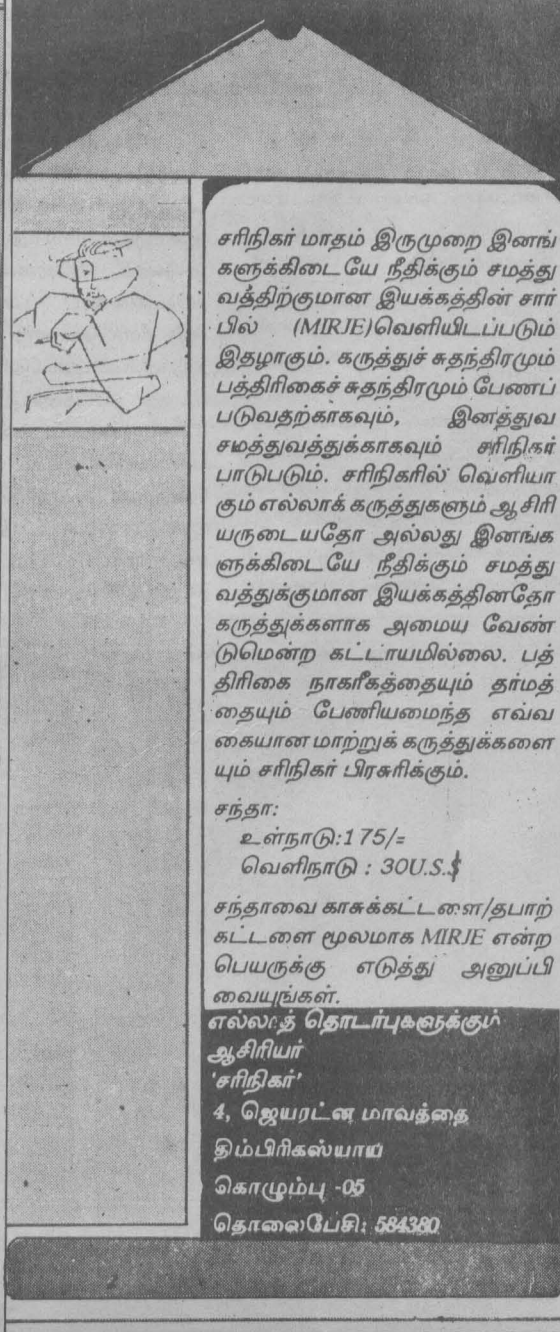 சரிநிகர் மாதம் இருமுறை இனங்
களுக்கிடையே நீதிக்கும் சமத்து
வத்திற்குமான இயக்கத்தின் சார்
பில் (MIRJE)வெளியிடப்படும்
இதழாகும். கருத்துச் சுதந்திரமும்
பத்திரிகைச் சுதந்திரமும் பேணப்
படுவதற்காகவும், இனத்துவ
சமத்துவத்துக்காகவும் சரிநிகர்
பாடுபடும். சரிநிகரில் வெளியா
கும் எல்லாக் கருத்துகளும் ஆசிரி
யருடையதோ அல்லது இனங்க
ளுக்கிடையே நீதிக்கும் சமத்து
வத்துக்குமான இயக்கத்தினதோ
கருத்துக்களாக அமைய வேண்
டுமென்ற கட்டாயமில்லை. பத்
திரிகை நாகரீகத்தையும் தர்மத்
தையும் பேணியமைந்த எவ்வ
கையான மாற்றுக் கருத்துக்களை
யும் சரிநிகர் பிரசுரிக்கும்.
சந்தா:
உள்நாடு:175/=
வெளிநாடு : 30U.S.$
சந்தாவை காசுக்கட்டளை/தபாற்
கட்டளை மூலமாக MIRJE என்ற
பெயருக்கு எடுத்து அனுப்பி
வையுங்கள்.
எல்லாத் தொடர்புகளுக்கும்
ஆசிரியர்
'சரிநிகர்'
4, ஜெயரட்ன மாவத்தை
திம்பிரிகஸ்யாய
கொழும்பு -05
தொலைபேசி: 584380